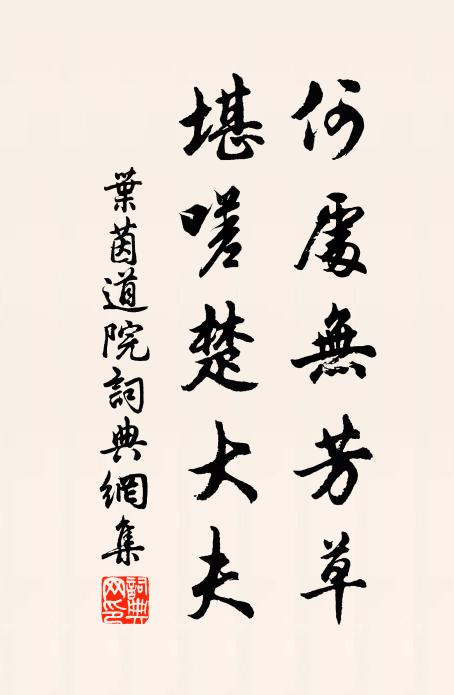 何處無芳草
堪嗟楚大夫
葉茵道院詞典網集
詞典網印